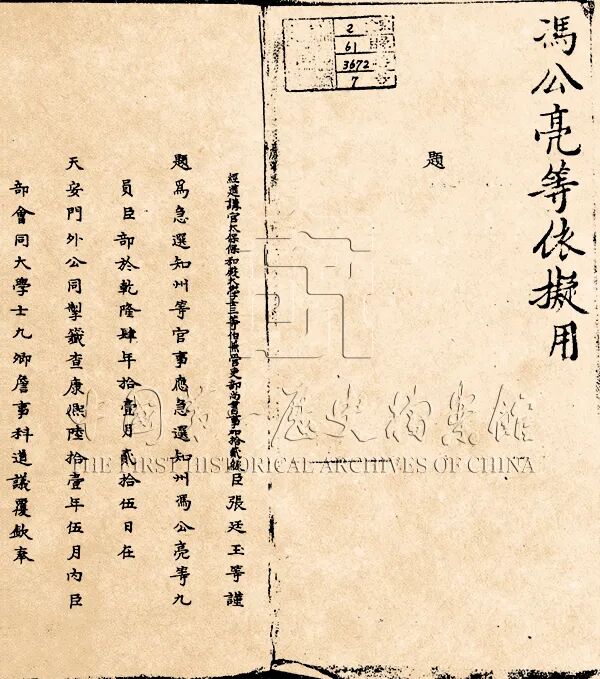 馮公亮等依擬用
題
2
61
3672
7
經筵講官太保保和殿大學士三等伯兼管吏部尚書事加拾貳級臣張廷玉等謹
題為急選知州等官事應急選知州馮公亮等九
員臣部於乾隆肆年拾壹月貳拾伍日在
天安門外公同掣籤查康熙陸拾壹年伍月內臣
部會同大學士九卿詹事科道議覆欽奉
中國第一歷史檔案館
THE FIRST HISTORICAL ARCHIVES OF CHINA